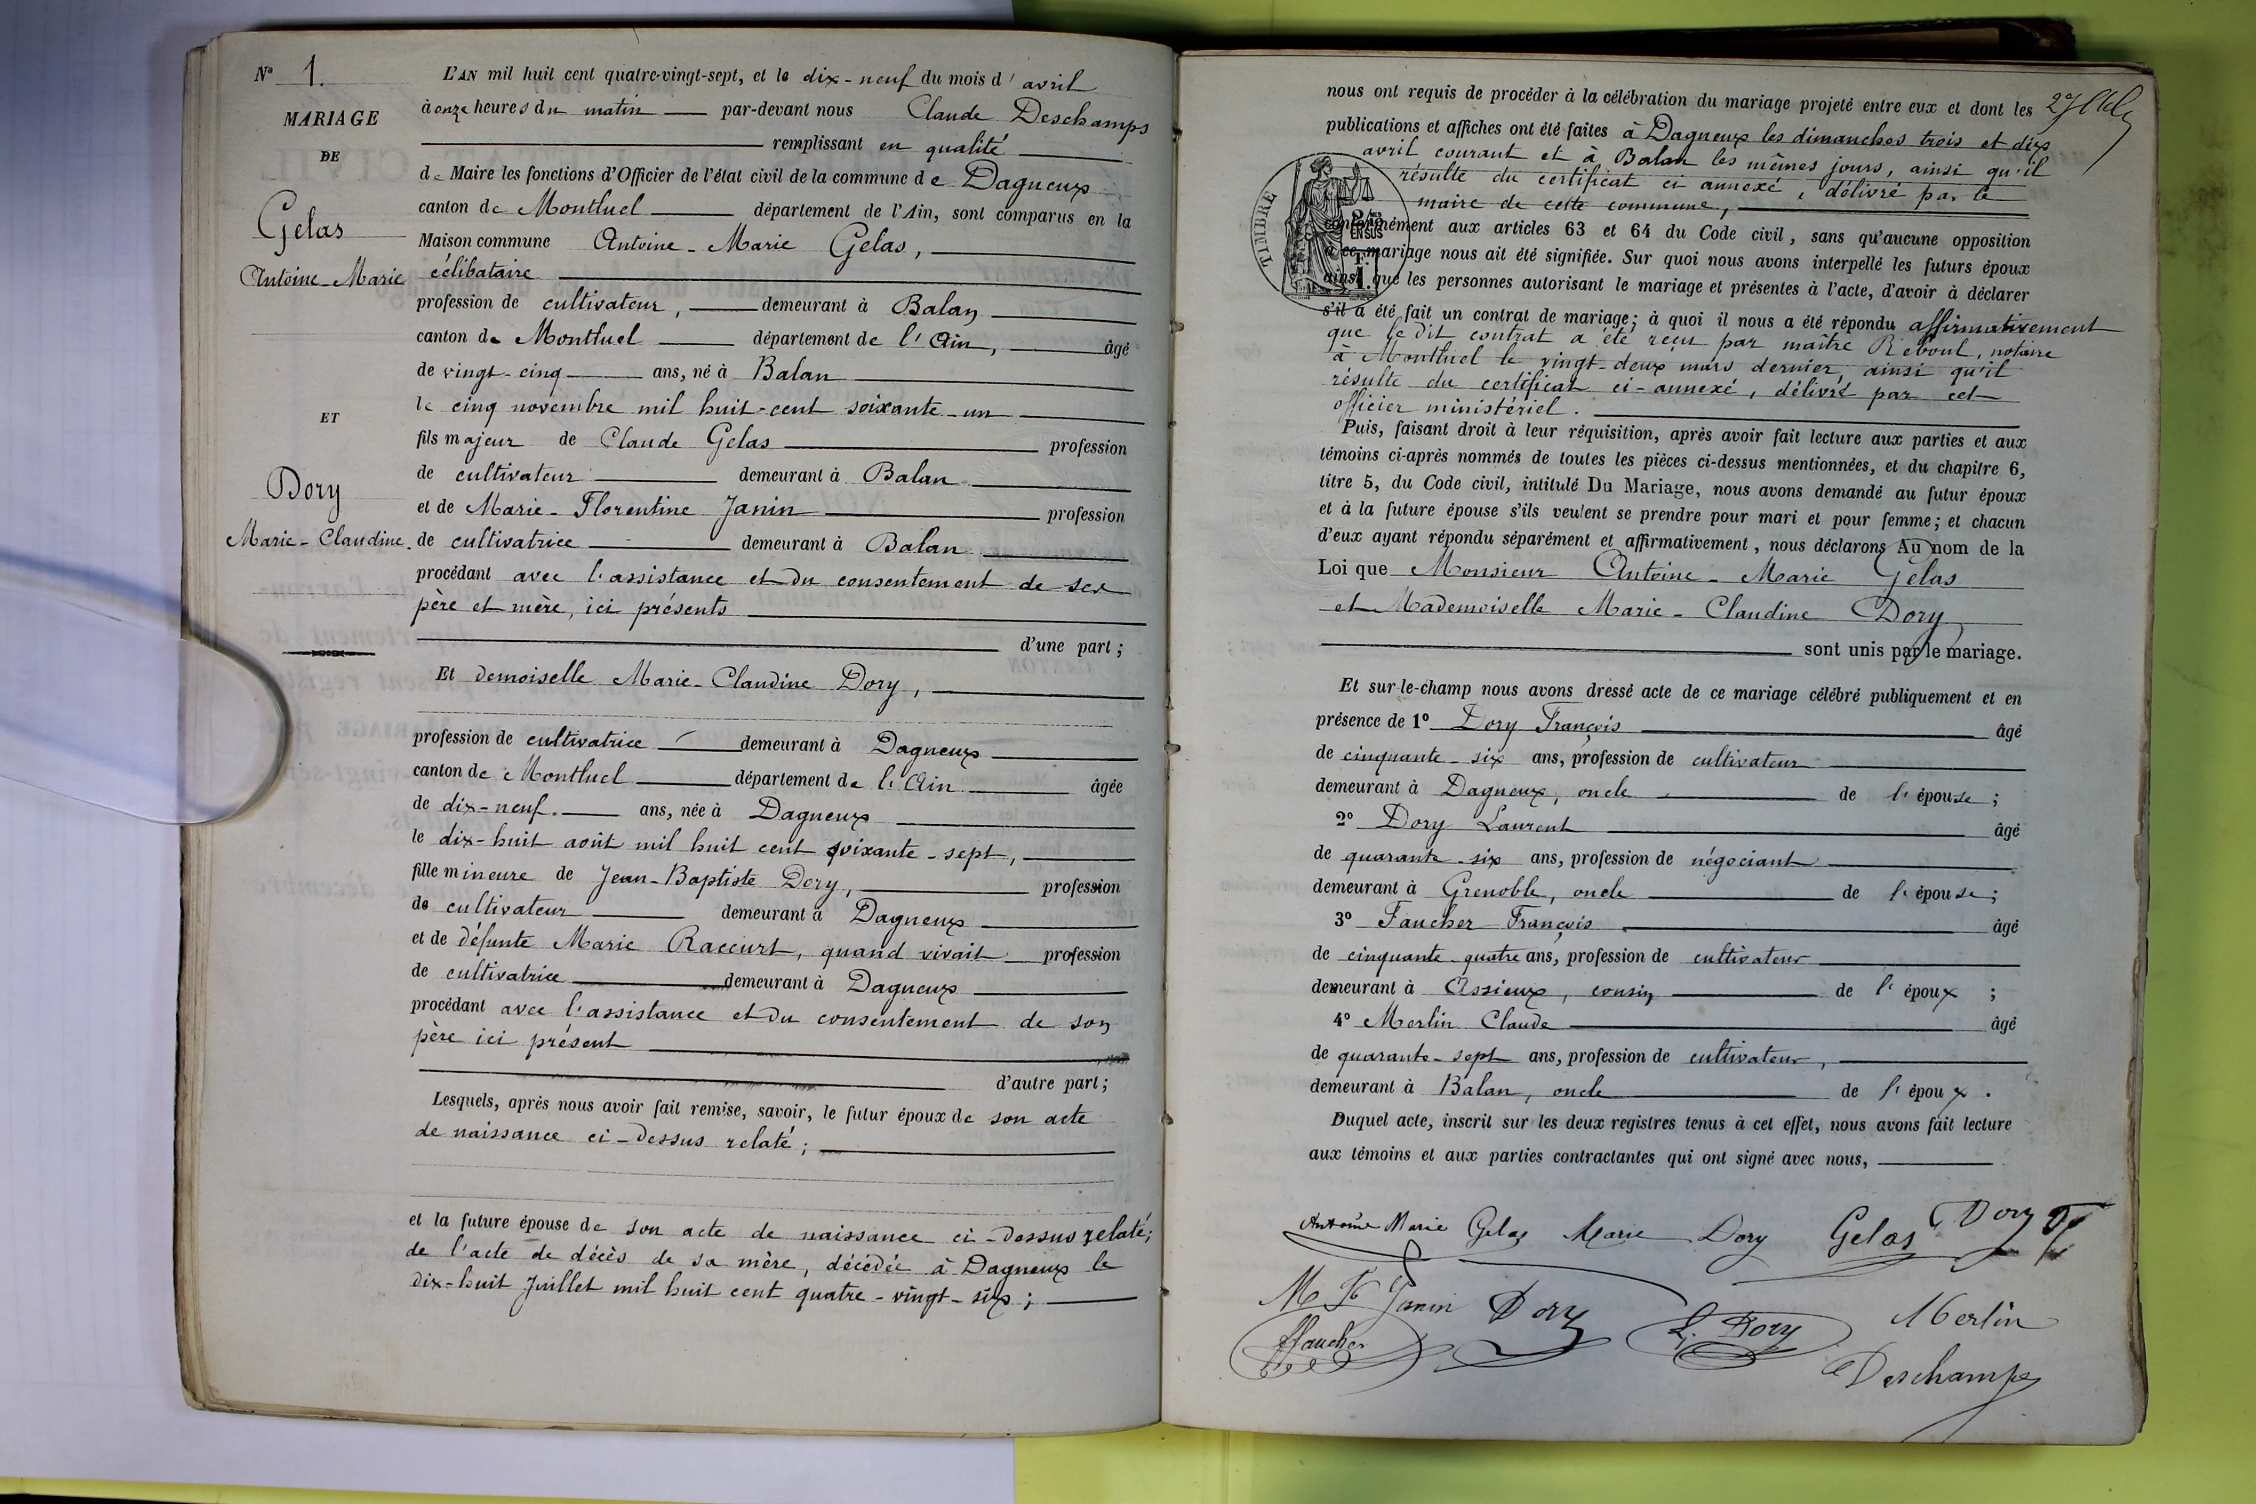 Nº 1.
MARIAGE
DE
Gelas
Antoine-Marie
ET
Dory
Marie-Claudine.
L'AN mil huit cent quatre-vingt-sept, et le dix-neuf du mois d'avril
à onze heures du matin par-devant nous Claude Deschamps
remplissant en qualité
de Maire les fonctions d'Officier de l'état civil de la commune de Dagneux
canton de Montluel département de l'Ain, sont comparus en la
Maison commune Antoine-Marie Gelas,
célibataire
profession de cultivateur, demeurant à Balan
canton de Montluel département de l'Ain, âgé
de vingt-cinq ans, né à Balan
le cinq novembre mil huit-cent soixante-un
fils majeur de Claude Gelas profession
de cultivateur demeurant à Balan
et de Marie-Florentine Janin profession
de cultivatrice demeurant à Balan
procédant avec l'assistance et du consentement de ses
père et mère, ici présents
d'une part;
Et demoiselle Marie-Claudine Dory,
profession de cultivatrice demeurant à Dagneux
canton de Montluel département de l'Ain âgée
de dix-neuf. ans, née à Dagneux
le dix-huit août mil huit cent soixante-sept,
fille mineure de Jean-Baptiste Dory, profession
de cultivateur demeurant à Dagneux
et de défunte Marie Raccurt, quand vivait profession
de cultivatrice demeurant à Dagneux
procédant avec l'assistance et du consentement de son
père ici présent
d'autre part;
Lesquels, après nous avoir fait remise, savoir, le futur époux de son acte
de naissance ci-dessus relaté;
et la future épouse de son acte de naissance ci-dessus relaté;
de l'acte de décès de sa mère, décédée à Dagneux le
dix-huit Juillet mil huit cent quatre-vingt-six;
nous ont requis de procéder à la célébration du mariage projeté entre eux et dont les
publications et affiches ont été faites à Dagneux les dimanches trois et dix
avril courant et à Balan les mêmes jours, ainsi qu'il
résulte du certificat ci annexé, délivré par le
maire de cette commune,
TIMBRE
conformément aux articles 63 et 64 du Code civil, sans qu'aucune opposition
à ce mariage nous ait été signifiée. Sur quoi nous avons interpellé les futurs époux
ainsi que les personnes autorisant le mariage et présentes à l'acte, d'avoir à déclarer
s'il a été fait un contrat de mariage; à quoi il nous a été répondu affirmativement
que le dit contrat a été reçu par maître Reboul, notaire
à Montluel le vingt-deux mars dernier, ainsi qu'il
résulte du certificat ci-annexé, délivré par cet
officier ministériel.
Puis, faisant droit à leur réquisition, après avoir fait lecture aux parties et aux
témoins ci-après nommés de toutes les pièces ci-dessus mentionnées, et du chapitre 6,
titre 5, du Code civil, intitulé Du Mariage, nous avons demandé au futur époux
et à la future épouse s'ils veulent se prendre pour mari et pour femme; et chacun
d'eux ayant répondu séparément et affirmativement, nous déclarons Au nom de la
Loi que Monsieur Antoine-Marie Gelas
et Mademoiselle Marie-Claudine Dory
sont unis par le mariage.
Et sur-le-champ nous avons dressé acte de ce mariage célébré publiquement et en
présence de 1º Dory François âgé
de cinquante-six ans, profession de cultivateur
demeurant à Dagneux, oncle de l'épouse;
2º Dory Laurent âgé
de quarante-six ans, profession de négociant
demeurant à Grenoble, oncle de l'épouse;
3º Faucher François âgé
de cinquante-quatre ans, profession de cultivateur
demeurant à Assieux, cousin de l'époux;
4º Merlin Claude âgé
de quarante-sept ans, profession de cultivateur,
demeurant à Balan, oncle de l'époux.
Duquel acte, inscrit sur les deux registres tenus à cet effet, nous avons fait lecture
aux témoins et aux parties contractantes qui ont signé avec nous,
Antoine Marie Gelas Marie Dory Gelas Dory
M F Janin Dory L. Dory Merlin
ffaucher
Deschamps